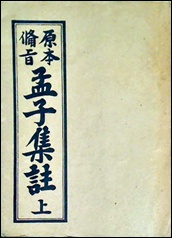 原本
備旨
孟子集註
上